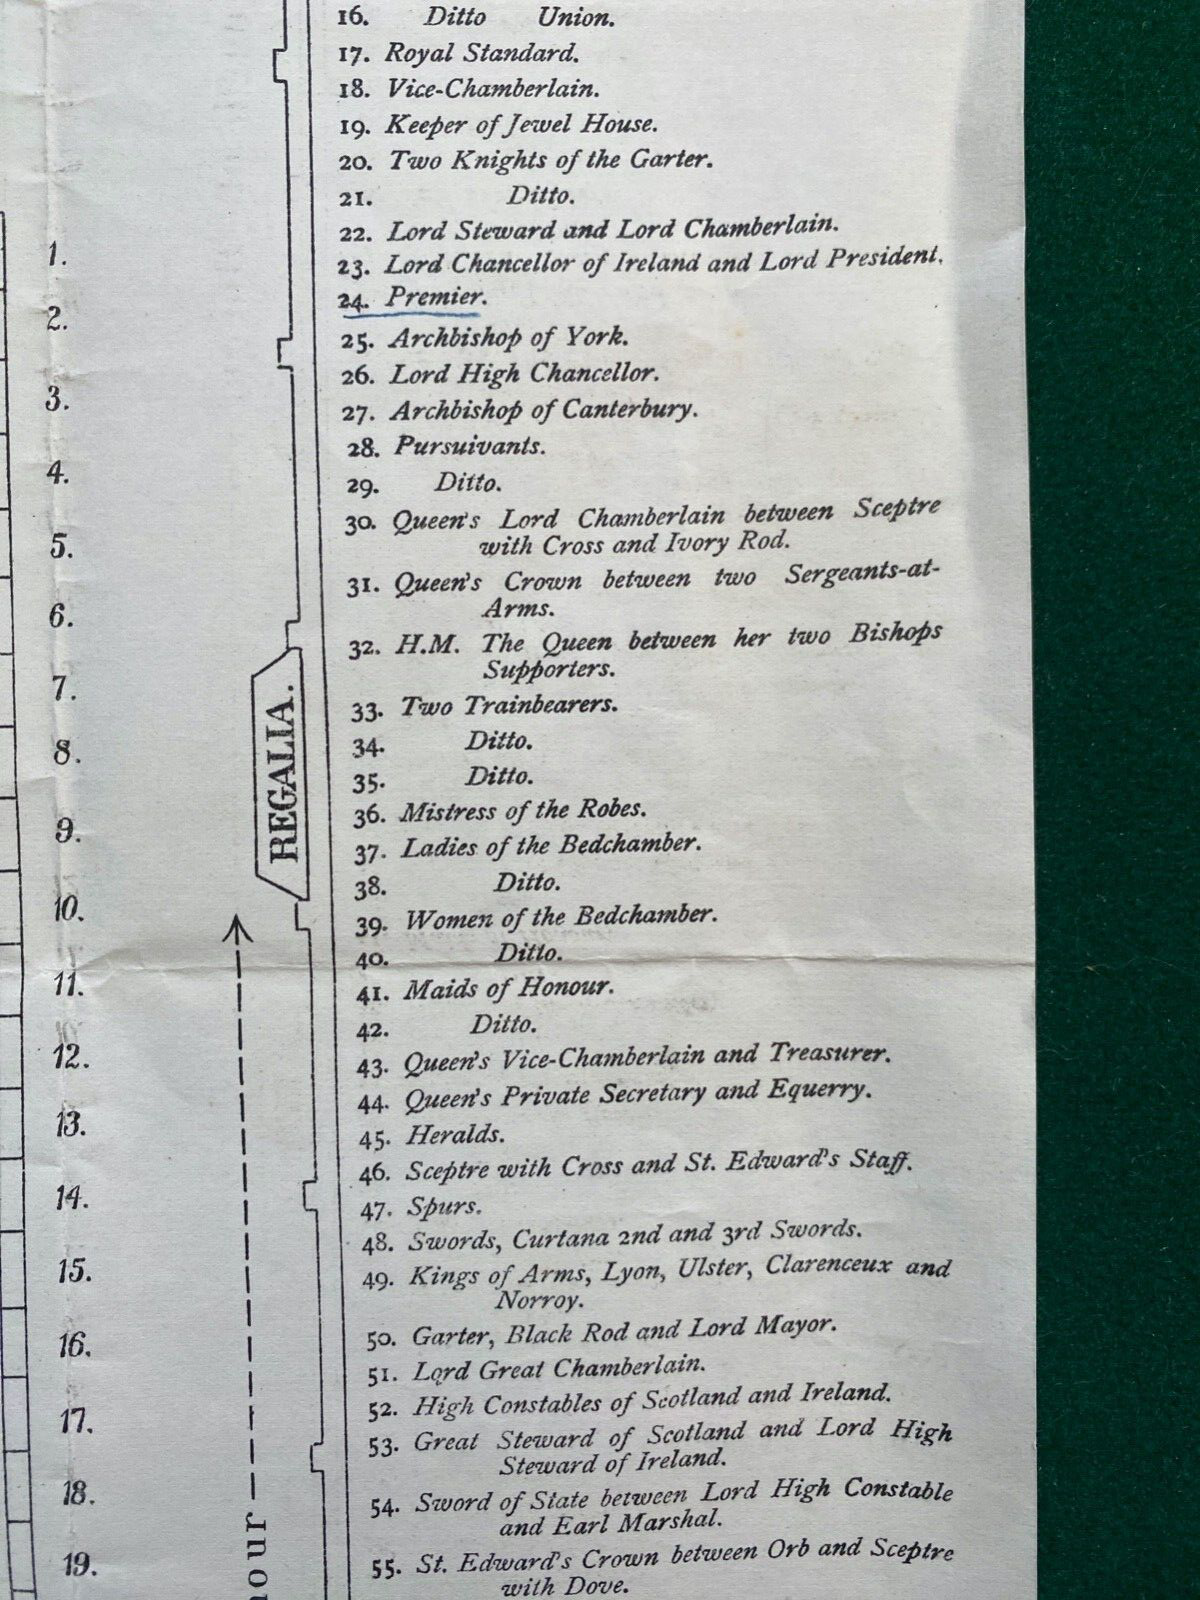 16. Ditto Union.
17. Royal Standard.
18. Vice-Chamberlain.
19. Keeper of Jewel House.
20. Two Knights of the Garter.
21. Ditto.
22. Lord Steward and Lord Chamberlain.
23. Lord Chancellor of Ireland and Lord President.
24. Premier.
25. Archbishop of York.
26. Lord High Chancellor.
27. Archbishop of Canterbury.
28. Pursuivants.
29. Ditto.
30. Queen's Lord Chamberlain between Sceptre
with Cross and Ivory Rod.
31. Queen's Crown between two Sergeants-at-
Arms.
32. H.M. The Queen between her two Bishops
Supporters.
33. Two Trainbearers.
34. Ditto.
35. Ditto.
36. Mistress of the Robes.
37. Ladies of the Bedchamber.
38. Ditto.
39. Women of the Bedchamber.
40. Ditto.
41. Maids of Honour.
42. Ditto.
43. Queen's Vice-Chamberlain and Treasurer.
44. Queen's Private Secretary and Equerry.
45. Heralds.
46. Sceptre with Cross and St. Edward's Staff.
47. Spurs.
48. Swords, Curtana 2nd and 3rd Swords.
49. Kings of Arms, Lyon, Ulster, Clarenceux and
Norroy.
50. Garter, Black Rod and Lord Mayor.
51. Lord Great Chamberlain.
52. High Constables of Scotland and Ireland.
53. Great Steward of Scotland and Lord High
Steward of Ireland.
54. Sword of State between Lord High Constable
and Earl Marshal.
55. St. Edward's Crown between Orb and Sceptre
with Dove.
1.
2.
3.
4.
5.
6.
7.
8.
9.
10.
11.
12.
13.
14.
15.
16.
17.
18.
19.
REGALIA.
our